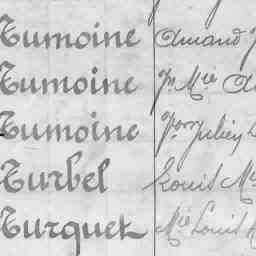 Tumoine Amand J
Tumoine Jn Mie A
Tumoine Julien
Turbel Louis M
Turquet Mie Louis A